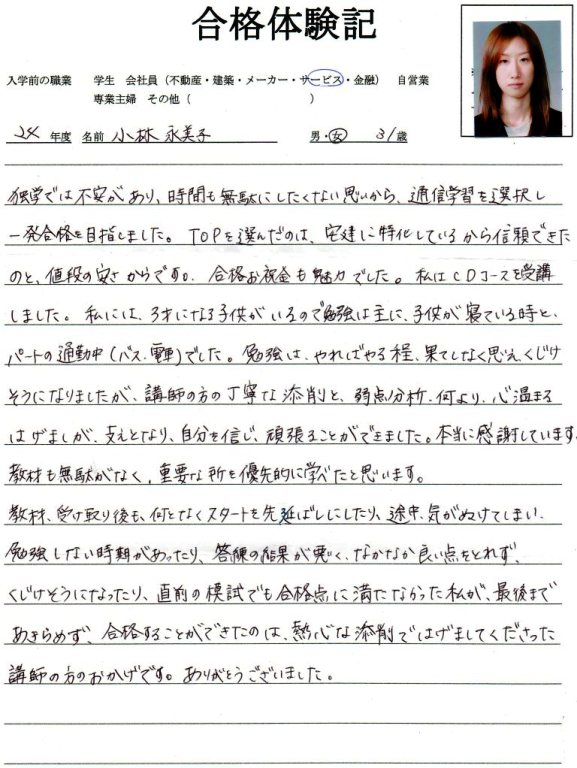 合格体験記
入学前の職業 学生 会社員（不動産・建築・メーカー・サービス・金融） 自営業
専業主婦 その他（ ）
24 年度 名前 小林 永美子 男・女 31歳
独学では不安があり、時間も無駄にしたくない思いから、通信学習を選択し
一発合格を目指しました。TOPを選んだのは、宅建に特化しているから信頼できた
のと、値段の安さからです。合格お祝金も魅力でした。私はCDコースを受講
しました。私には、3才になる子供がいるので勉強は主に、子供が寝ている時と、
パートの通勤中（バス、電車）でした。勉強は、やればやる程、果てしなく思え、くじけ
そうになりましたが、講師の方の丁寧な添削と、弱点分析、何より、心温まる
はげましが、支えとなり、自分を信じ、頑張ることができました。本当に感謝しています。
教材も無駄がなく、重要な所を優先的に学べたと思います。
教材、受け取り後も、何となくスタートを先延ばしにしたり、途中、気がぬけてしまい、
勉強しない時期があったり、答練の結果が悪く、なかなか良い点をとれず、
くじけそうになったり、直前の模試でも合格点に満たなかった私が、最後まで
あきらめず、合格することができたのは、熱心な添削ではげましてくださった
講師の方のおかげです。ありがとうございました。